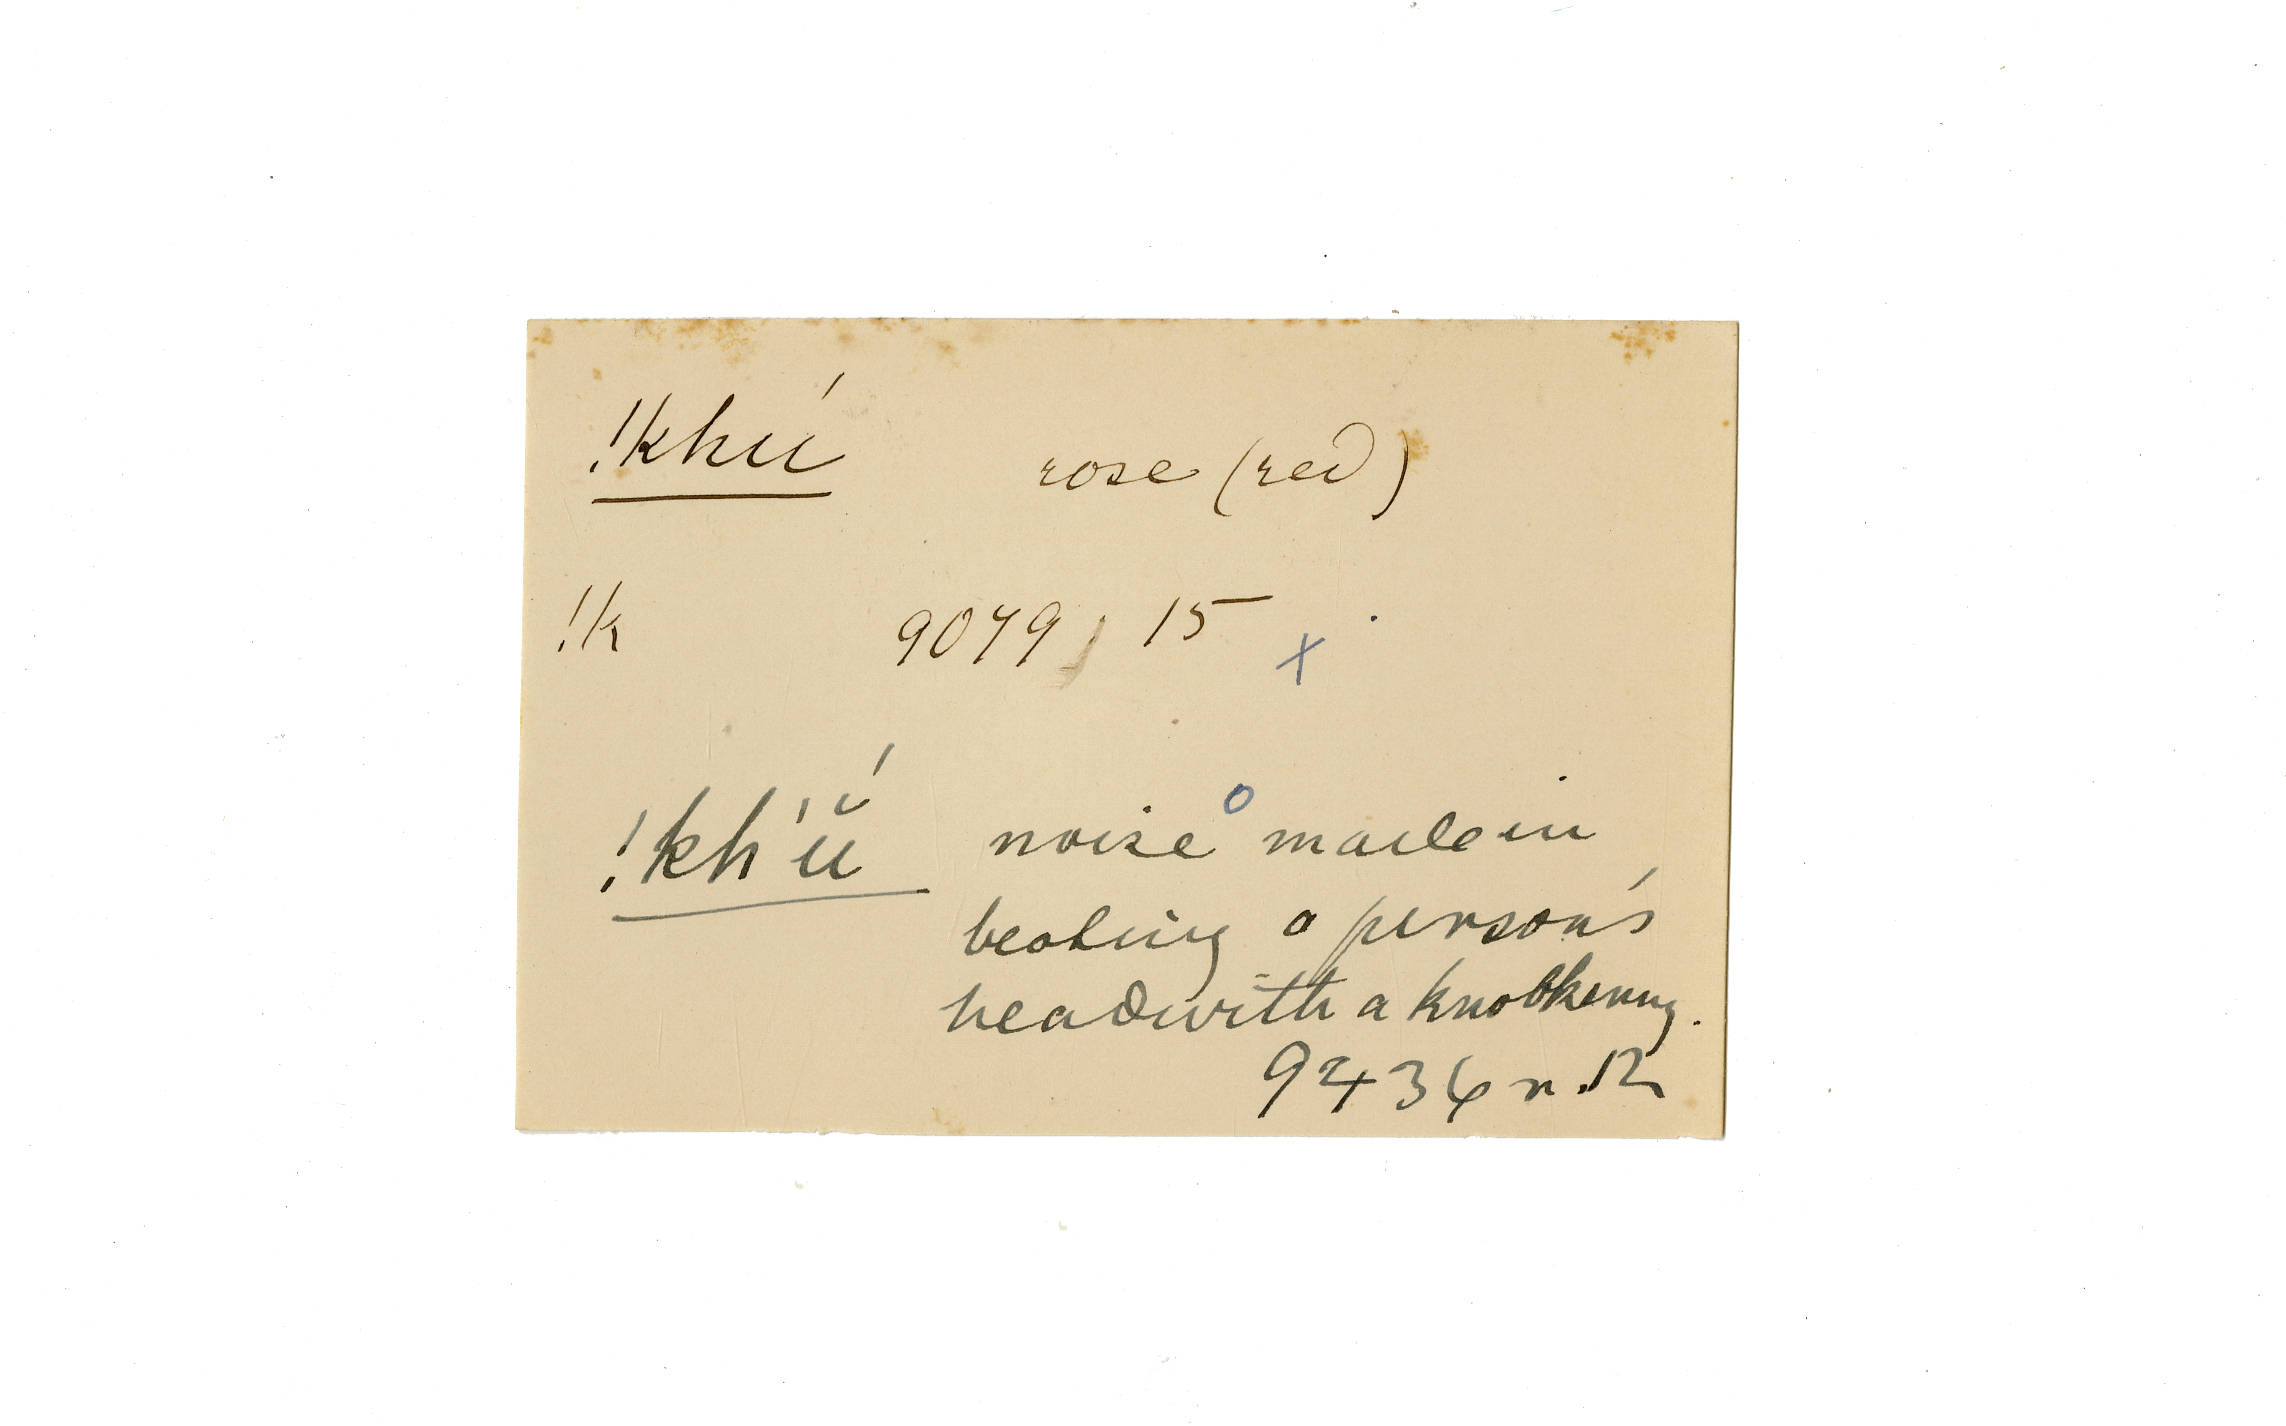 !khú rose (red)
!k 9079, 15 x
!kh'ŭ́ noise o made in
beating a person's
head with a knobkerry.
9436 r. 12